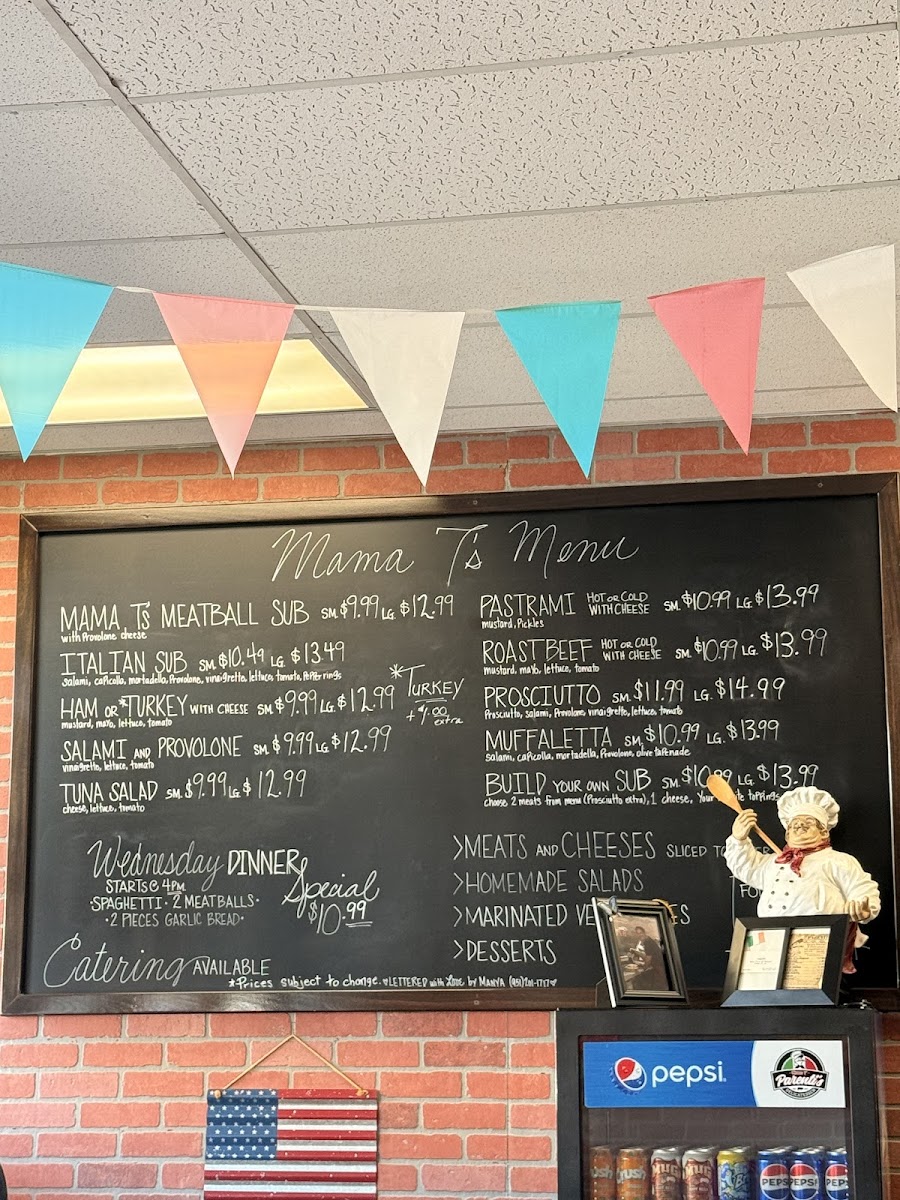 Mama T's Menu
MAMA T's MEATBALL SUB SM. $9.99 LG. $12.99
with Provolone cheese
ITALIAN SUB SM. $10.49 LG. $13.49
salami, capicolla, mortadella, Provolone, vinaigrette, lettuce, tomato, PePPer rings
HAM OR *TURKEY WITH CHEESE SM. $9.99 LG. $12.99
mustard, mayo, lettuce, tomato
*TURKEY
+ $1.00 extra
SALAMI AND PROVOLONE SM. $9.99 LG. $12.99
vinaigrette, lettuce, tomato
TUNA SALAD SM. $9.99 LG. $12.99
cheese, lettuce, tomato
PASTRAMI HOT OR COLD WITH CHEESE SM. $10.99 LG. $13.99
mustard, Pickles
ROAST BEEF HOT OR COLD WITH CHEESE SM. $10.99 LG. $13.99
mustard, mayo, lettuce, tomato
PROSCIUTTO SM. $11.99 LG. $14.99
Prosciutto, salami, Provolone, vinaigrette, lettuce, tomato
MUFFALETTA SM. $10.99 LG. $13.99
salami, capicolla, mortadella, Provolone, olive tapenade
BUILD YOUR OWN SUB SM. $10.99 LG. $13.99
choose 2 meats from menu (Prosciutto extra), 1 cheese, Your toppings
Wednesday DINNER Special
STARTS @ 4PM
•SPAGHETTI• 2 MEATBALLS•
•2 PIECES GARLIC BREAD•
$10.99
>MEATS AND CHEESES SLICED TO
>HOMEMADE SALADS
>MARINATED
>DESSERTS
Catering AVAILABLE
*Prices subject to change. ♥LETTERED with Love by MANYA (951)201-1717♥
pepsi
Parenti's
Crush
MUG
MUG
PEPSI
PEPSI
PEPSI